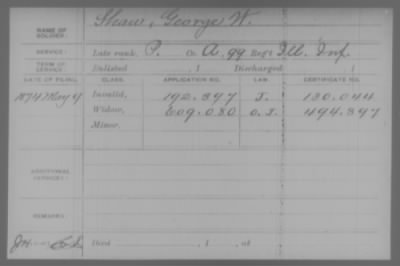 NAME OF SOLDIER: Shaw, George W.
SERVICE: Late rank, P. Co. A, 99 Reg't Ill. Inf.
TERM OF SERVICE: Enlisted , 1 Discharged , 1
DATE OF FILING. CLASS. APPLICATION NO. LAW. CERTIFICATE NO.
1874 May 9 Invalid, 192.897 130.044
Widow, 609.080 494.397
Minor,
ADDITIONAL SERVICES:
REMARKS:
Died , 1 , at